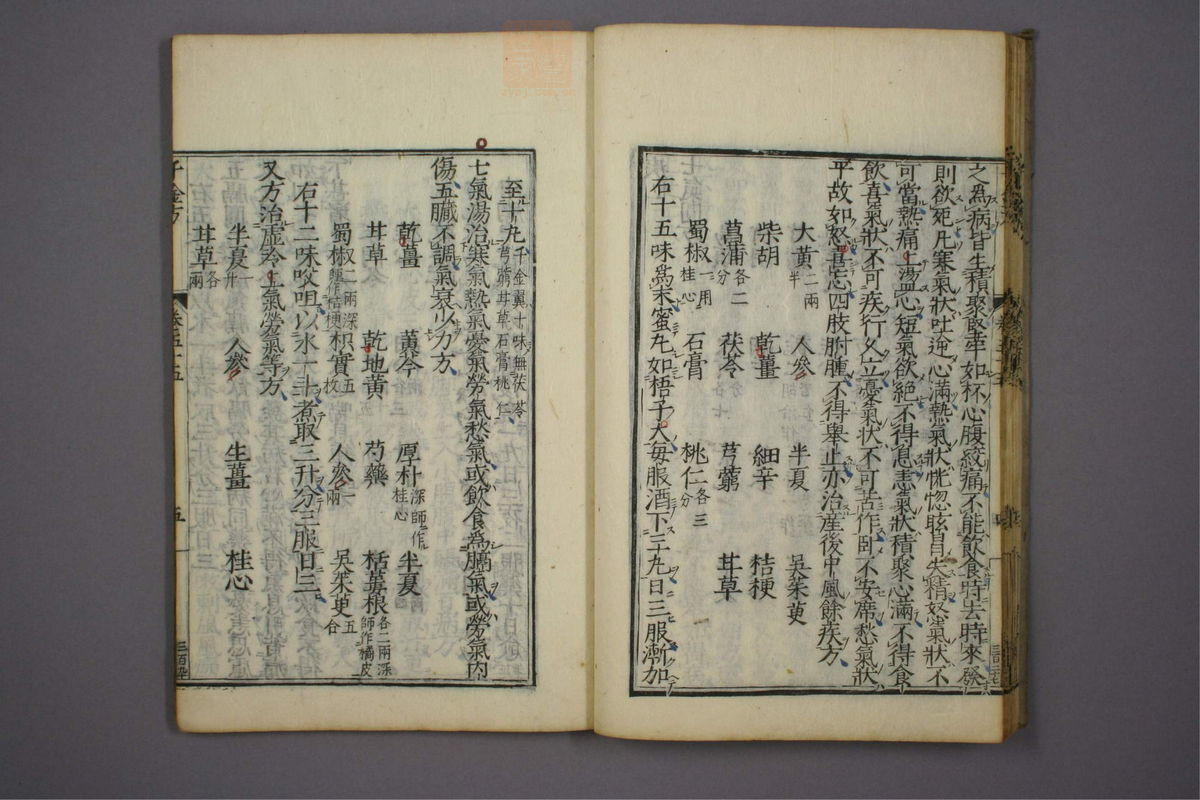 之為病皆生積聚堅牢如杯心腹絞痛不能飲食時去時來發
則欲死凡寒氣狀吐逆心滿熱氣狀恍惚眩冒失精怒氣狀不
可當熱痛上盪心短氣欲絕不得息恚氣狀積聚心滿不得食
飲喜氣狀不可疾行久立憂氣狀不可苦作臥不安席愁氣狀
平故如怒喜忘四肢胕腫不得舉止亦治產後中風餘疾方
大黃二兩半 人參 半夏 吳茱萸
柴胡 乾薑 細辛 桔梗
菖蒲各二分 茯苓 芎藭 甘草
蜀椒一用桂心 石膏 桃仁各三分
右十五味為末蜜丸如梧子大每服酒下三丸日三服漸加
至十丸千金翼十味無茯苓芎藭甘草石膏桃仁
七氣湯治寒氣熱氣憂氣勞氣愁氣或飲食為膈氣或勞氣內
傷五臟不調氣衰少力方
乾薑 黃芩 厚朴深師作桂心 半夏
甘草 乾地黃 芍藥 栝蔞根各二兩深師作橘皮
蜀椒二兩深師作桔梗 枳實五枚 人參一兩 吳茱萸五合
右十二味㕮咀以水一斗煮取三升分三服日三
又方治虛冷上氣勞氣等方
半夏一升 人參 生薑 桂心
甘草各兩
千金方 卷五十五 五